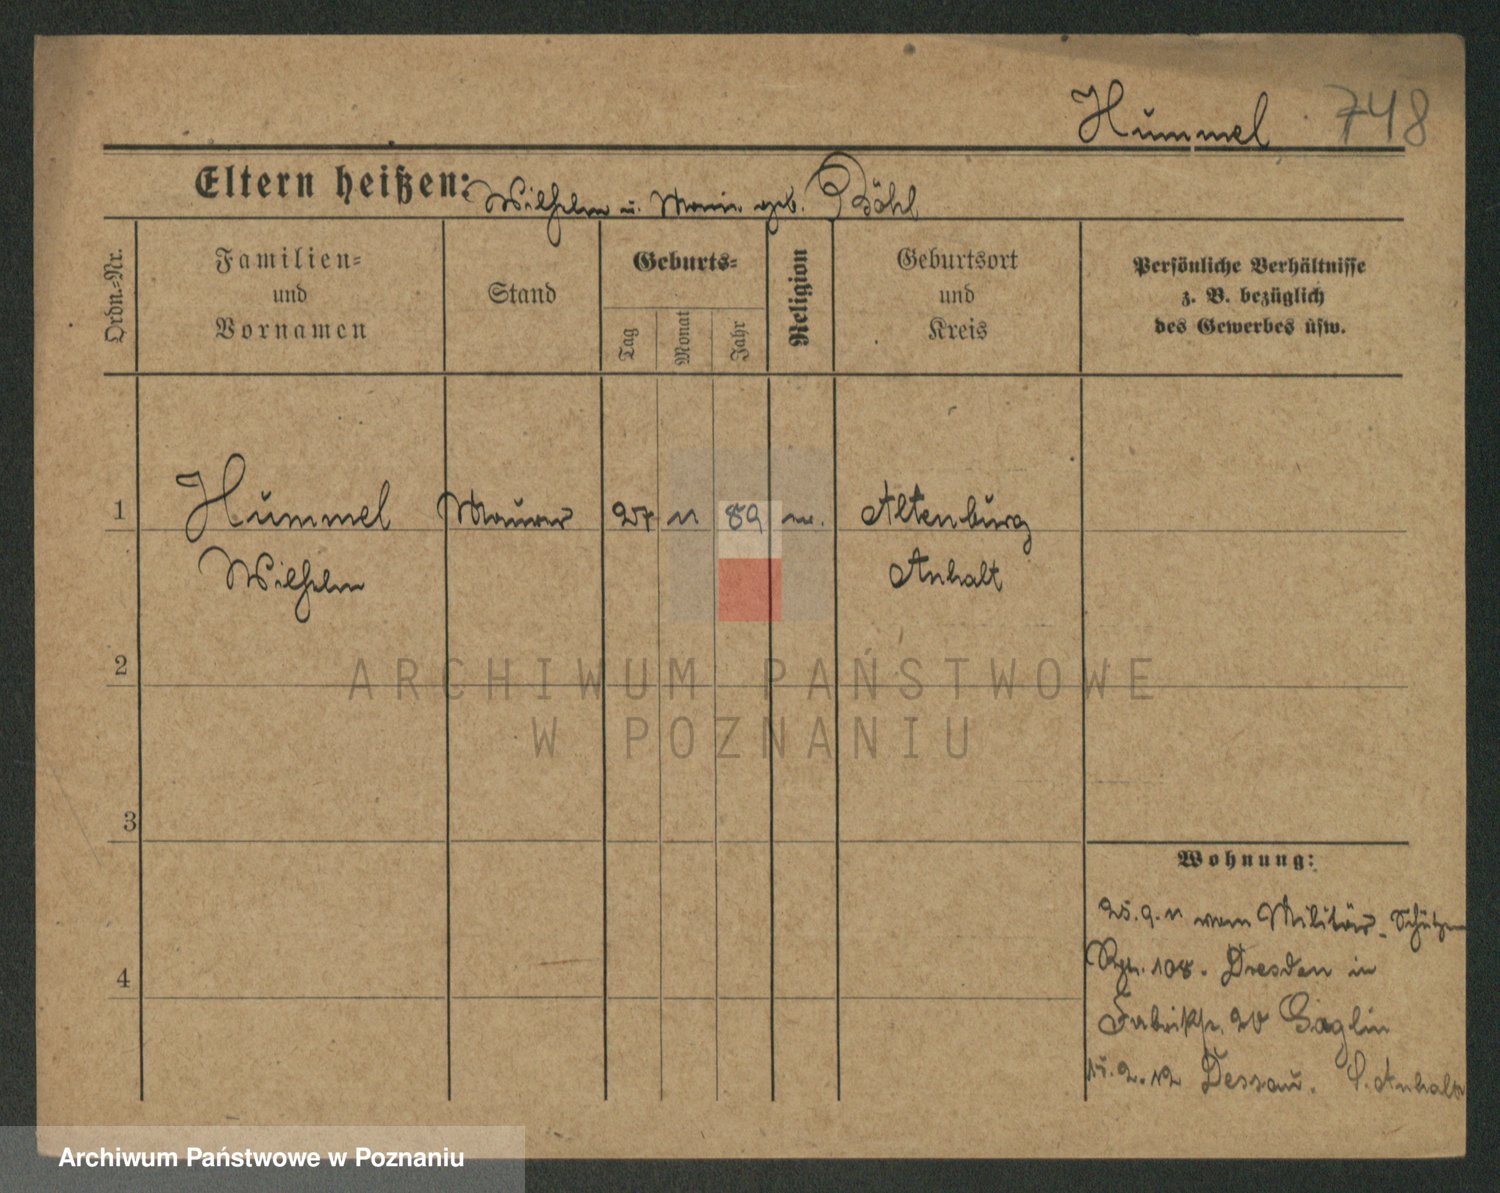 Hummel 748
Eltern heißen: Wilhelm u. Marie geb. Böhl
Ordn.-Nr.
Familien-
und
Vornamen
Stand
Geburts-
Tag
Monat
Jahr
Religion
Geburtsort
und
Kreis
Persönliche Verhältnisse
z. B. bezüglich
des Gewerbes usw.
1 Hummel Maurer 27 11 89 ev. Altenburg
Wilhelm Anhalt
2
3
4
Wohnung:
25.9.11 vom Militär-Schützen
Rgt. 108. Dresden in
Fabrikstr. 20
15.2.12 Dessau. Anhalt
ARCHIWUM PAŃSTWOWE
W POZNANIU
Archiwum Państwowe w Poznaniu